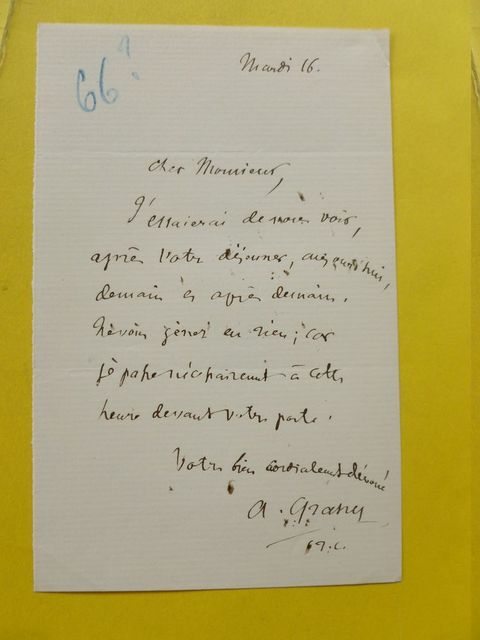 66?
Mardi 16.
Cher Monsieur,
J'essaierai de vous voir,
après votre déjeuner, aujourd'hui,
demain et après demain.
Ne vous gênez en rien; car
je passe nécessairement à cette
heure devant votre porte.
Votre bien cordialement dévoué
A.